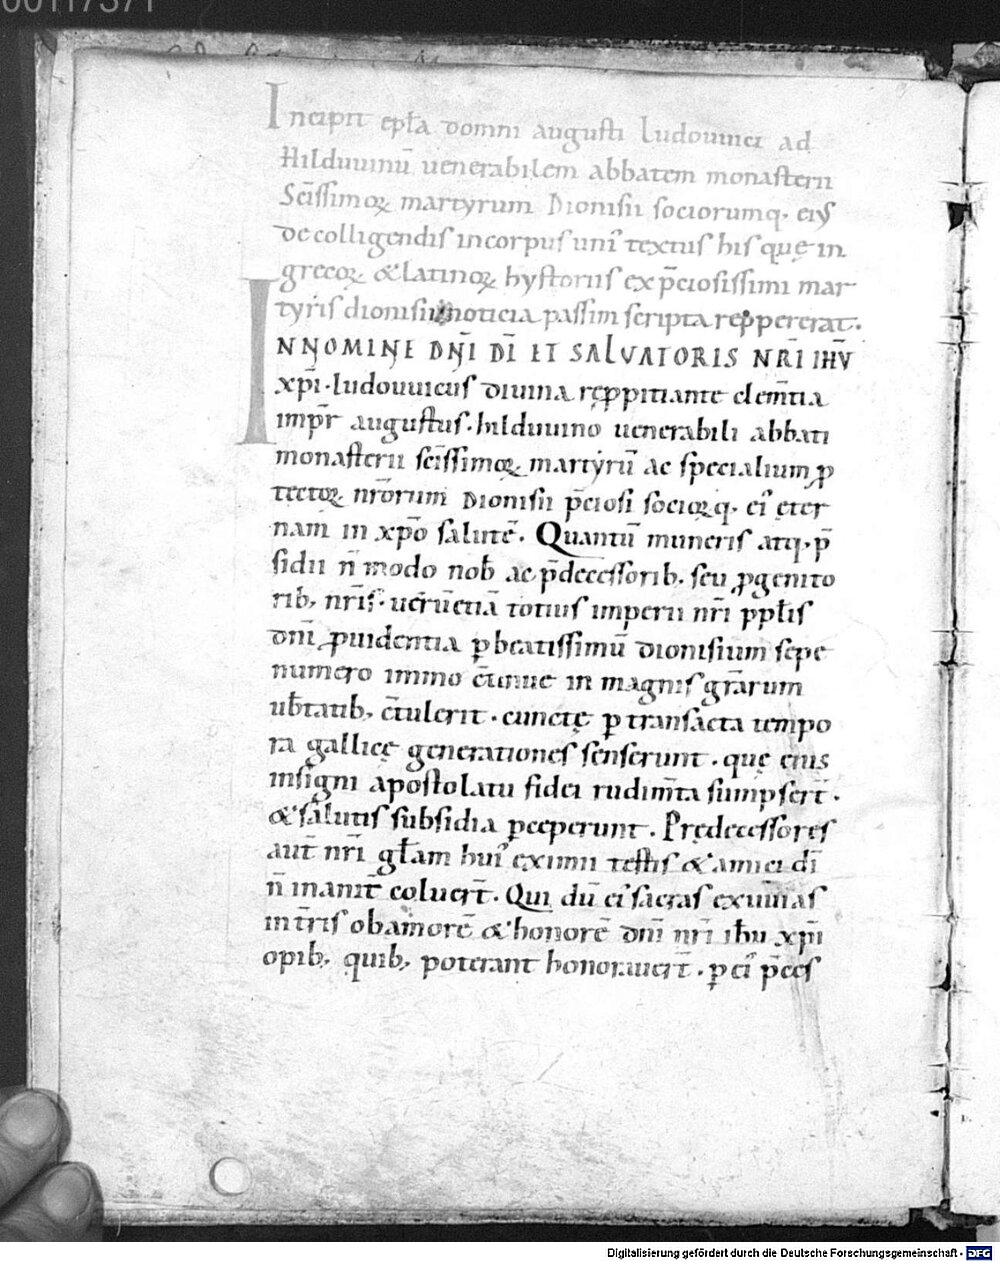 00117371
Incipit epła domni augusti Ludouuici ad
Hilduuinū uenerabilem abbatem monasterii
Sc̄issimoꝝ martyrum Dionisii sociorumq. eiꝰ
De colligendis in corpus uni textus his quę in
grecoꝝ &latinoꝝ hystoriis ex p̄ciosissimi mar
tyris dionisii noticia passim scripta reppererat.
IN NOMINE DN̄I DĪ ET SALVATORIS NR̄I IHV̄
xp̄i. Ludouuicus diuina reppitiante clem̄tia
imp̄r augustus. hilduuino uenerabili abbati
monasterii sc̄issimoꝝ martyrū ac specialium ꝓ
tectoꝝ nr̄orum Dionisii p̄ciosi socioꝝq. ei' eter
nam in xp̄o salutē. Quantū muneris atq. p̄
sidii n̄ modo nob̄ ac p̄decessorib, seu ꝓgenito
rib, nr̄is. uerū etiā totius imperii nr̄i ppłis
dn̄i ꝓuidentia ꝑ beatissimū dionisium sepe
numero immo c̄tinue in magnis gr̄arum
ub̄tatib, c̄tulerit. cunctę ꝑ transacta tempo
ra gallicę generationes senserunt. quę eius
insigni apostolatu fidei rudim̄ta sumpser̄t.
&salutis subsidia ꝑceperunt. Prędecessores
aut̄ nr̄i gło̅am hui' eximii testis &amici dī
n̄ inanit̄ coluer̄t. Qui dū ei' sacras exuuias
in t̄ris ob amorē &honorē dn̄i nr̄i ihu xp̄i
opib, quib, poterant honorauer̄t. ꝑ ei' p̄ces
Digitalisierung gefördert durch die Deutsche Forschungsgemeinschaft - DFG